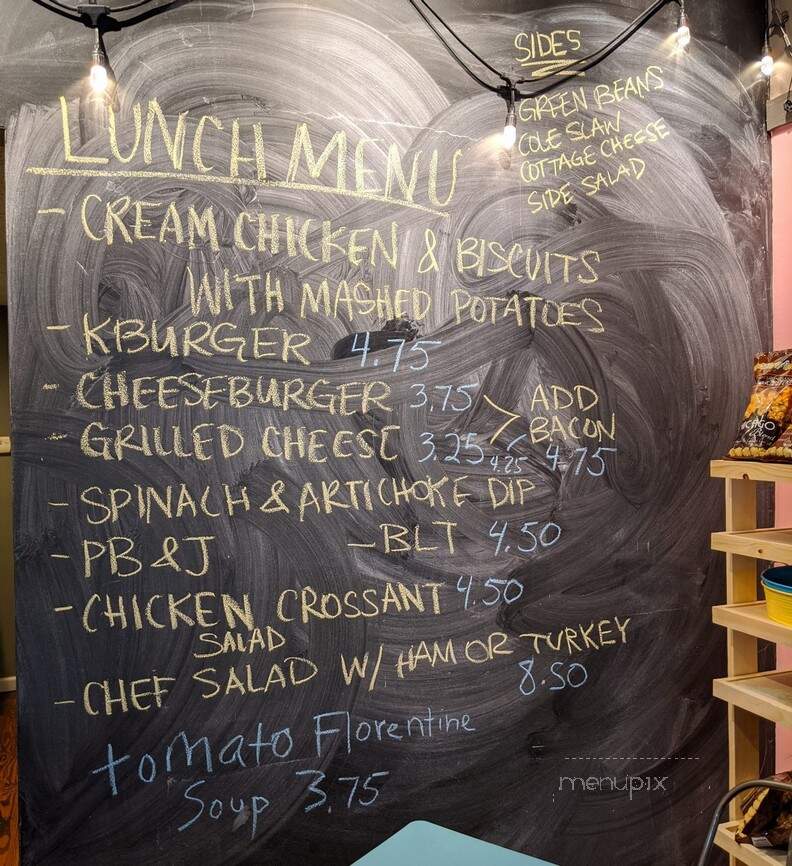 LUNCH MENU
- CREAM CHICKEN & BISCUITS
WITH MASHED POTATOES
- KBURGER 4.75
- CHEESEBURGER 3.75 > ADD
BACON
- GRILLED CHEESE 3.25 4.25 4.75
- SPINACH & ARTICHOKE DIP
- PB & J - BLT 4.50
- CHICKEN CROSSANT 4.50
SALAD
- CHEF SALAD W/ HAM OR TURKEY
8.50
tomato Florentine
Soup 3.75
SIDES
GREEN BEANS
COLE SLAW
COTTAGE CHEESE
SIDE SALAD
menupix